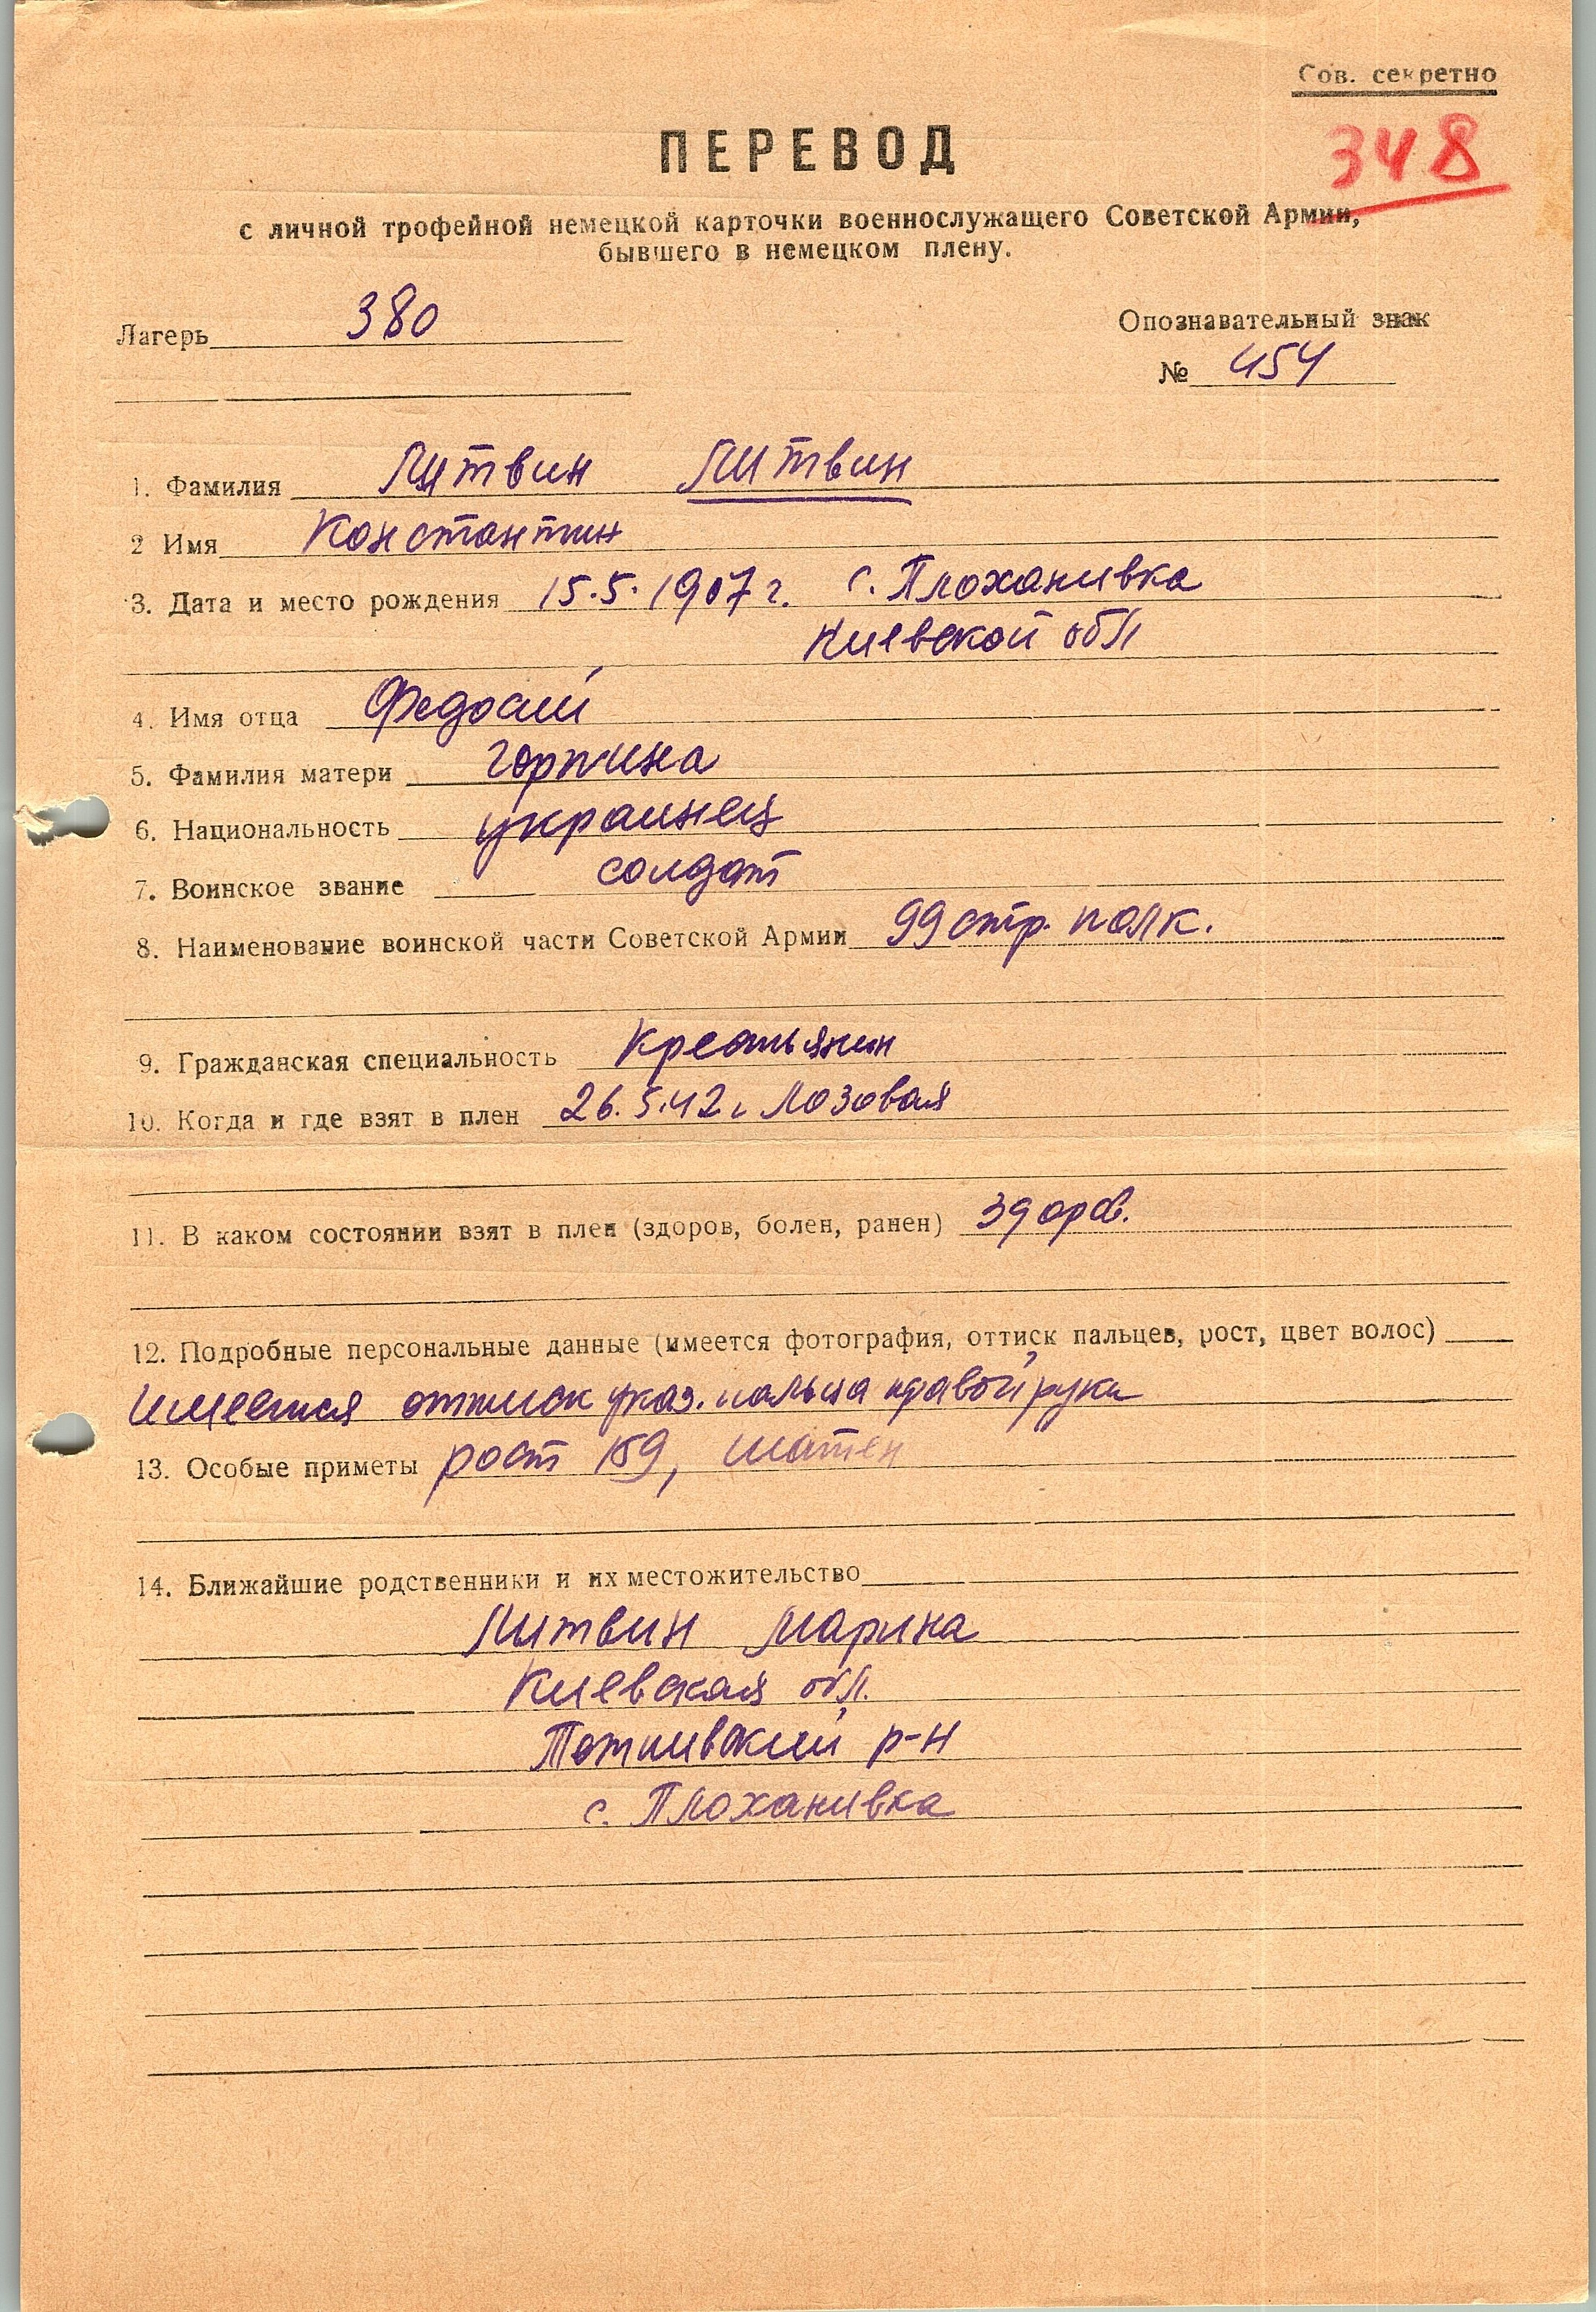 Сов. секретно
348
ПЕРЕВОД
с личной трофейной немецкой карточки военнослужащего Советской Армии,
бывшего в немецком плену.
Лагерь 380
Опознавательный знак
№ 454
1. Фамилия Литвин Литвин
2 Имя Константин
3. Дата и место рождения 15.5.1907 г. с. Плоханивка
Киевской обл
4. Имя отца Федосий
5. Фамилия матери Горпина
6. Национальность украинец
7. Воинское звание солдат
8. Наименование воинской части Советской Армии 99 стр. полк.
9. Гражданская специальность Крестьянин
10. Когда и где взят в плен 26.5.42 г. Лозовая
11. В каком состоянии взят в плен (здоров, болен, ранен) здоров.
12. Подробные персональные данные (имеется фотография, оттиск пальцев, рост, цвет волос)
Имеется оттиск указ. пальца правой руки
13. Особые приметы рост 159, шатен
14. Ближайшие родственники и их местожительство
Литвин Марина
Киевская обл.
р-н
с. Плоханивка